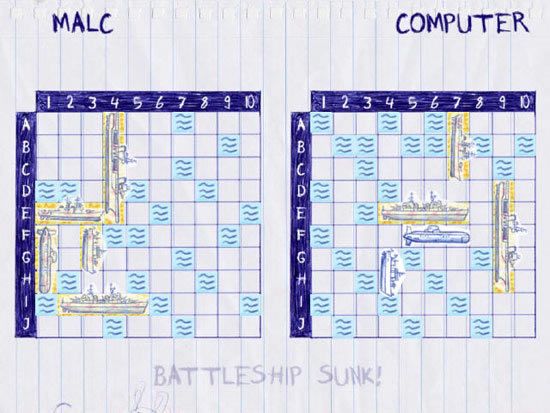 MALC COMPUTER
1 2 3 4 5 6 7 8 9 10 1 2 3 4 5 6 7 8 9 10
A A
B B
C C
D D
E E
F F
G G
H H
I I
J J
BATTLESHIP SUNK!